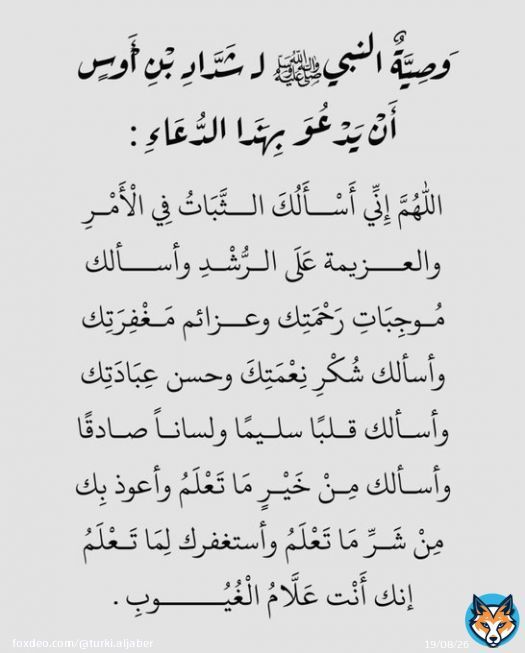 وَصِيَّةٌ النبي ﷺ لـ شَدَّادِ بْنِ أَوسٍ
أَنْ يَدْعُوَ بِهَذا الدُّعَاءِ :
اللهُمَّ إِنِّي أَسْـــأَلُكَ الـــثَّبَاتُ فِي الْأَمْـــرِ
والعـــزيمة عَلَى الـــرُّشْـــدِ وأســـألك
مُـــوجِبَاتِ رَحْمَتِك وعـــزائم مَـــغْفِرَتِك
وأسألك شُكْرِ نِعْمَتِكَ وحسن عِبَادَتِك
وأســـألك قـــلبًا سلـــيمًا ولساناً صـــادقًا
وأســـألك مِـــنْ خَيْـــرٍ مَا تَعْلَمُ وأعوذ بِك
مِنْ شَـــرِّ مَا تَعْلَمُ وأستغفرك لِمَا تَـــعْلَمُ
إنك أَنْت عَلَّامُ الْغُيُـــــوبِ .
foxdeo.com/@turki.aljaber
19/08/26